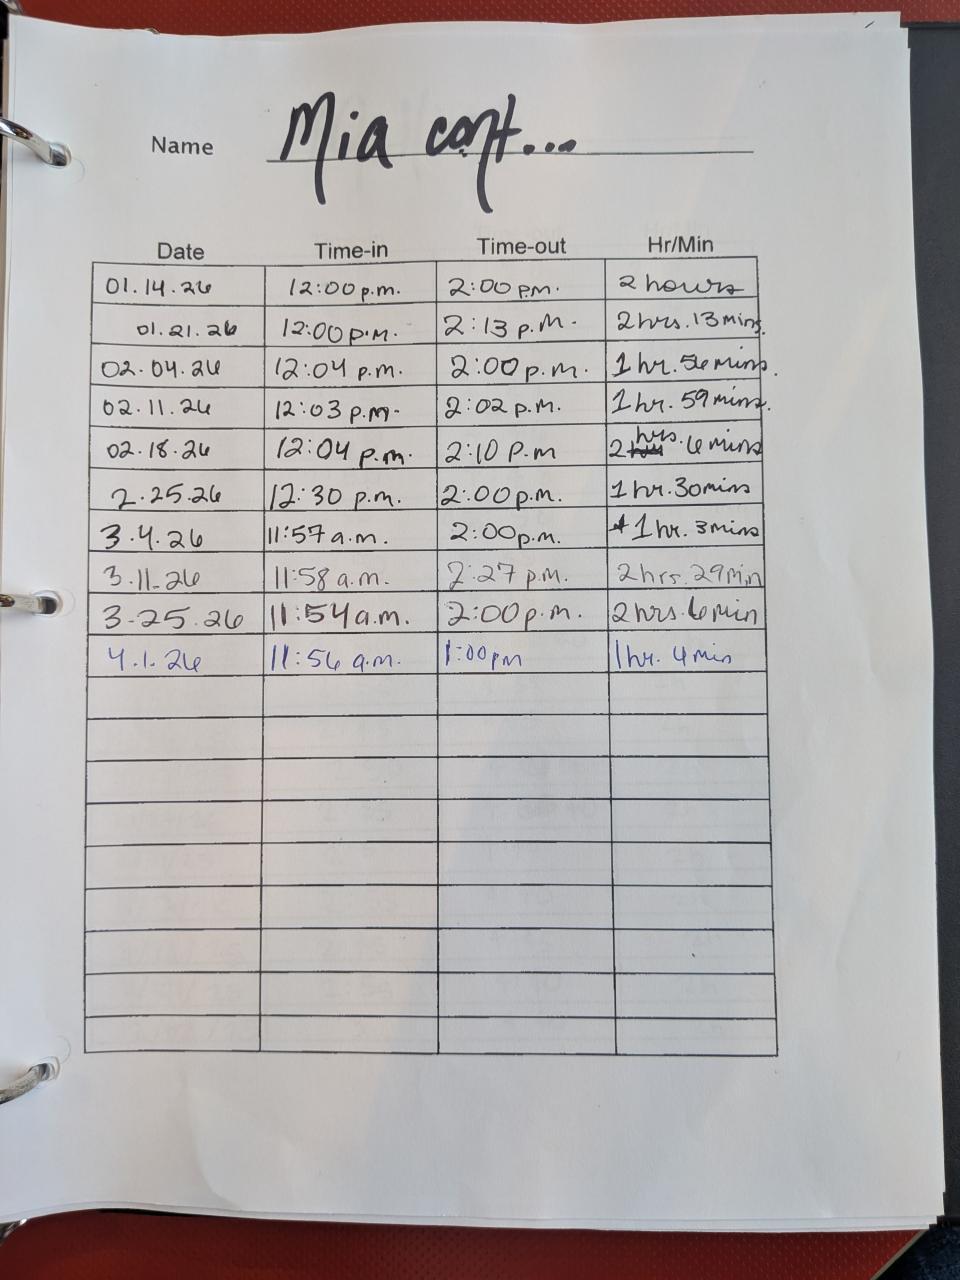 Name Mia cont...
Date Time-in Time-out Hr/Min
01.14.26 12:00 p.m. 2:00 p.m. 2 hours
01.21.26 12:00 p.m. 2:13 p.m. 2 hrs. 13 mins.
02.04.26 12:04 p.m. 2:00 p.m. 1 hr. 56 mins.
02.11.26 12:03 p.m. 2:02 p.m. 1 hr. 59 mins.
02.18.26 12:04 p.m. 2:10 p.m 2 hrs. 6 mins
2.25.26 12:30 p.m. 2:00 p.m. 1 hr. 30 mins
3.4.26 11:57 a.m. 2:00 p.m. 1 hr. 3 mins
3.11.26 11:58 a.m. 2:27 p.m. 2 hrs. 29 min
3.25.26 11:54 a.m. 2:00 p.m. 2 hrs. 6 min
4.1.26 11:56 a.m. 1:00 pm 1 hr. 4 min